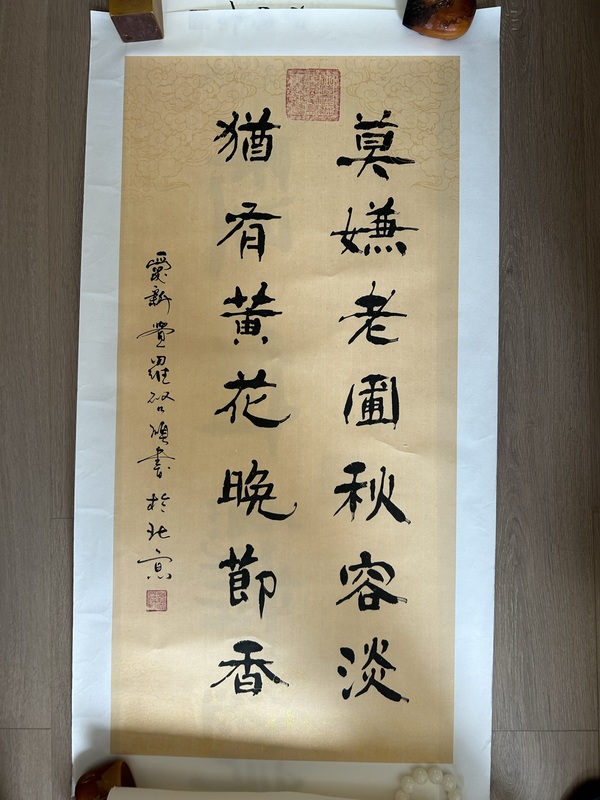 莫嫌老圃秋容淡
猶有黃花晚節香
愛新覺羅啓頎書於北京